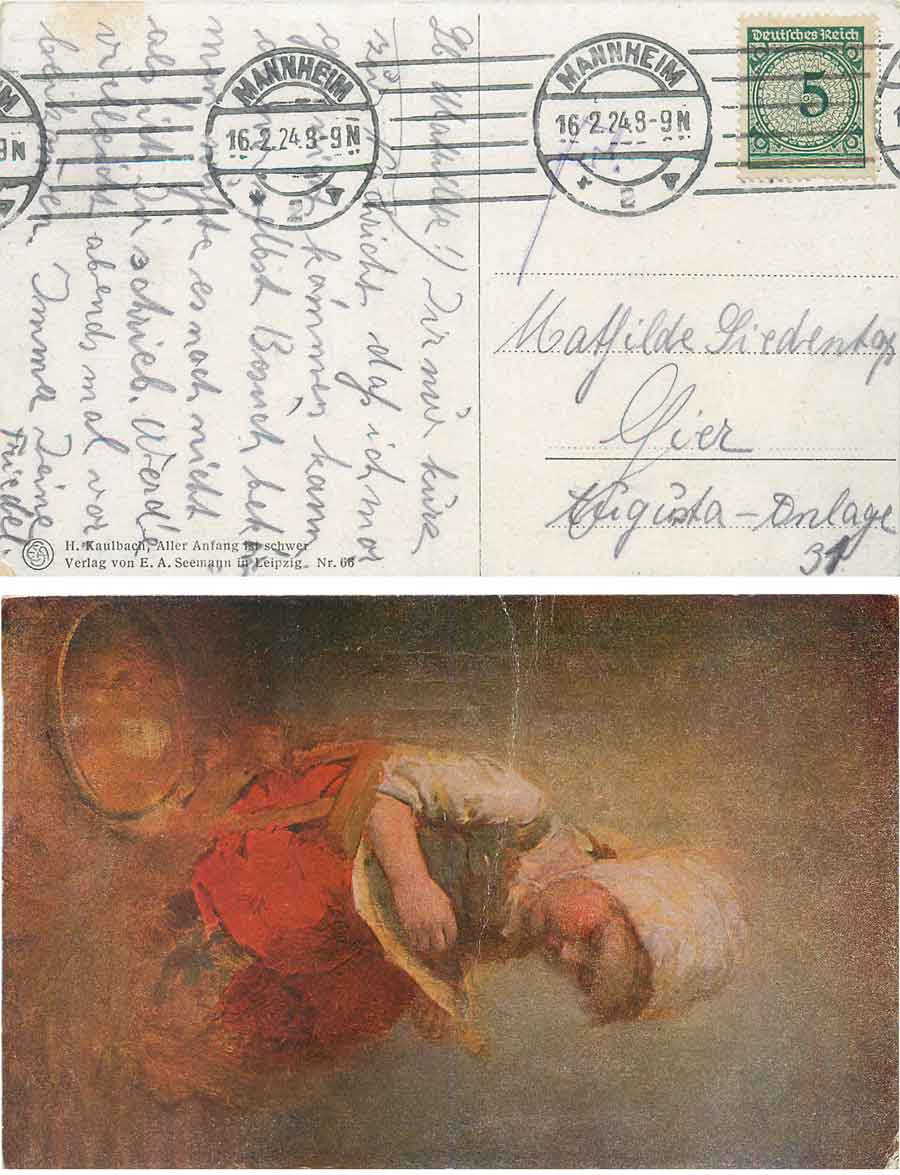 Deutsches Reich
5
MANNHEIM
16.2.24.8-9N
2
MANNHEIM
16.2.24.8-9N
2
Mathilde Siedentop
Hier
Augusta-Anlage
31
Lb Mathilde! Dir nur kurz
zur Nachricht, daß ich mor
kommen kann
selbst Besuch bek
es noch nicht
als ich Dir schrieb. Werde
vielleicht abends mal vor
beikommen. Immer Deine
Friedel.
H. Kaulbach, Aller Anfang ist schwer
Verlag von E. A. Seemann in Leipzig. Nr. 66